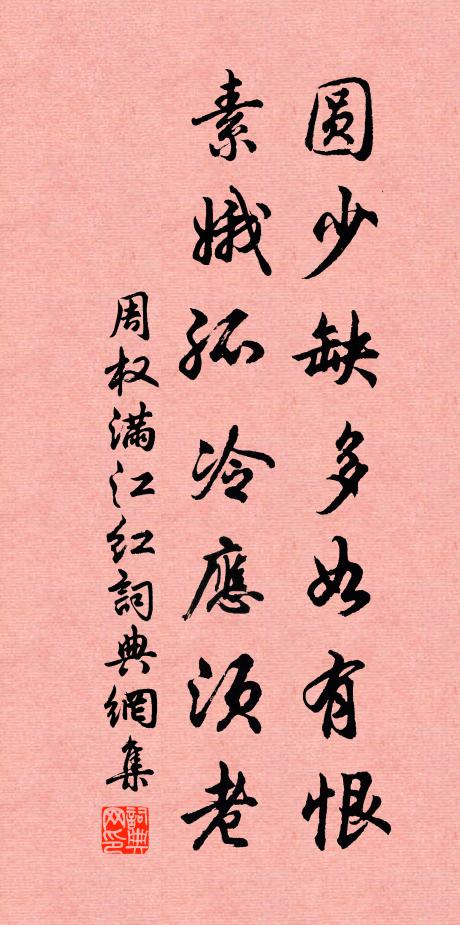 圆少缺多如有恨
素娥孤冷應须老
周权满江红詞典網集
詞典网印